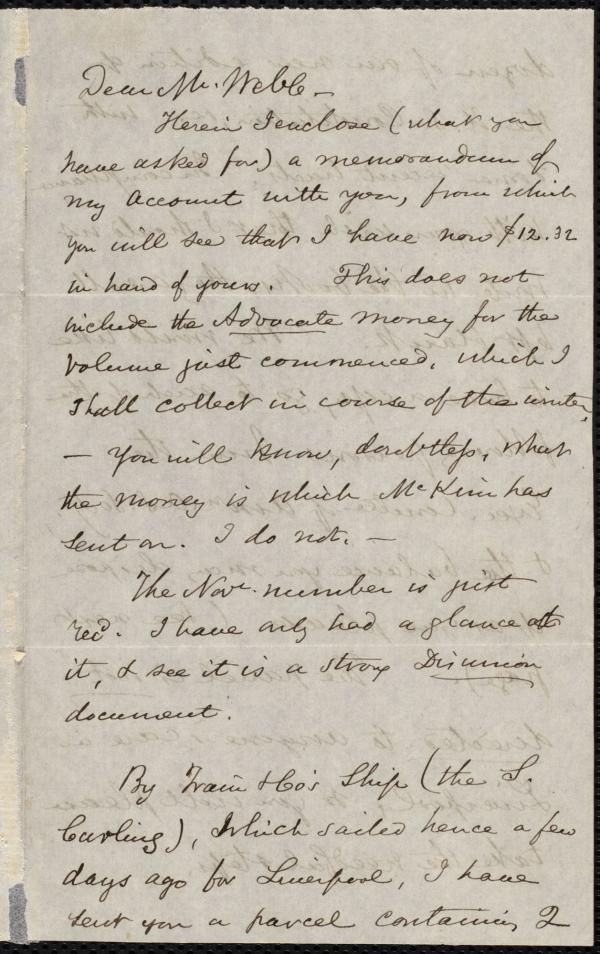 Dear Mr. Webb—
Herein I enclose (what you
have asked for) a memorandum of
my account with you, from which
you will see that I have now $12.32
in hand of yours. This does not
include the Advocate money for the
volume just commenced, which I
shall collect in course of the winter,
— You will know, doubtless, what
the money is which McKim has
sent on. I do not. —
The Novr. number is just
recd. I have only had a glance at
it, & see it is a strong Disunion
document.
By Train & Co's Ship (the S.
Curling), which sailed hence a few
days ago for Liverpool, I have
sent you a parcel containing 2